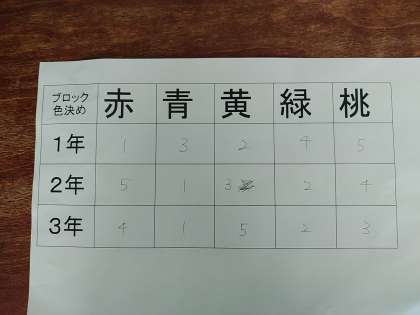 ブロック
色決め 赤 青 黄 緑 桃
1年 1 3 2 4 5
2年 5 1 3 2 4
3年 4 1 5 2 3